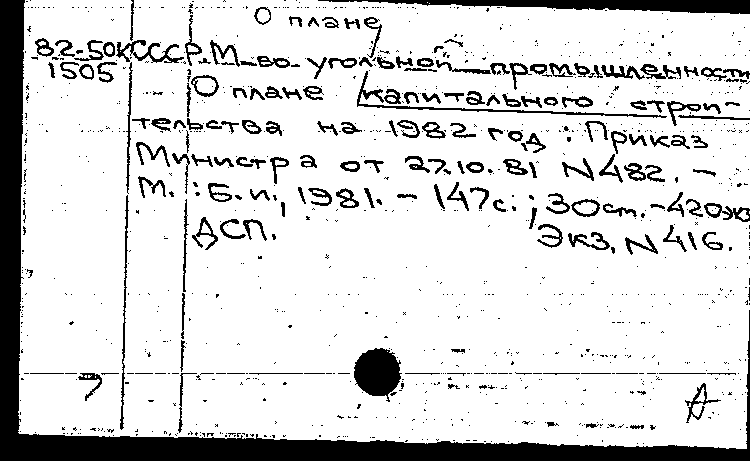 О плане
82-50К СССР. М-во угольной промышленности
1505
О плане капитального строи-
тельства на 1982 год : Приказ
Министра от 27.10.81 N482. –
М. : Б.и., 1981. – 147с. ; 30см. – 420экз
ДСП. Экз. N 416.